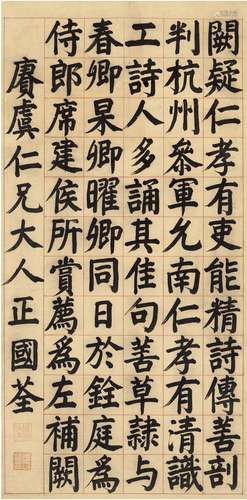 闕疑仁孝有吏能精詩傳善剖
判杭州叅軍允南仁孝有清識
工詩人多誦其佳句善草隷与
春卿杲卿曜卿同日於銓庭爲
侍郎席建侯所賞薦爲左補闕
賡虞仁兄大人正國荃